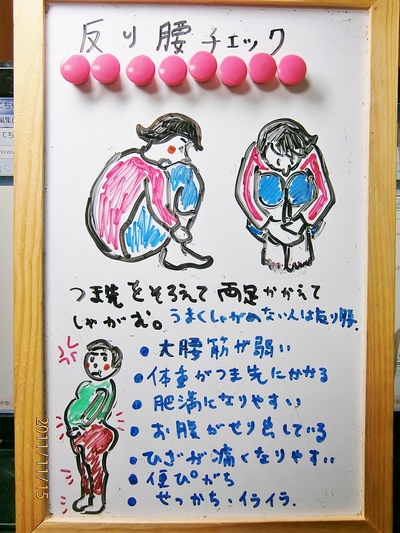 反り腰チェック
つま先をそろえて 両足かかえて
しゃがむ。うまくしゃがめない人は反り腰
• 大腰筋が弱い
• 体重がつま先にかかる
• 肥満になりやすい
• お腹がせり出している
• ひざが痛くなりやすい
• 便ぴがち
• せっかち・イライラ.
2011/11/15